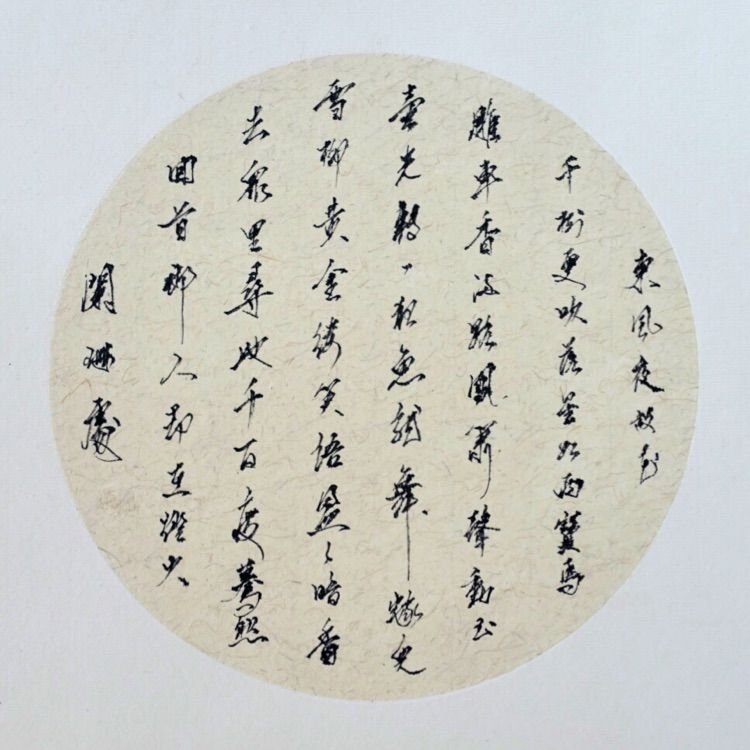 東風夜放花
千樹更吹落星如雨寶馬
雕車香滿路鳳簫聲動玉
壺光轉一夜魚龍舞蛾兒
雪柳黃金縷笑語盈々暗香
去衆里尋他千百度驀然
回首那人却在燈火
闌珊處